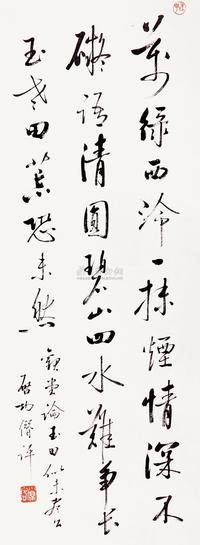 萬綠西泠一抹煙情深不
礙語清圓碧山四水難爭長
玉老田荒恐未然
觀堂論玉田似未盡公
啟功僭評